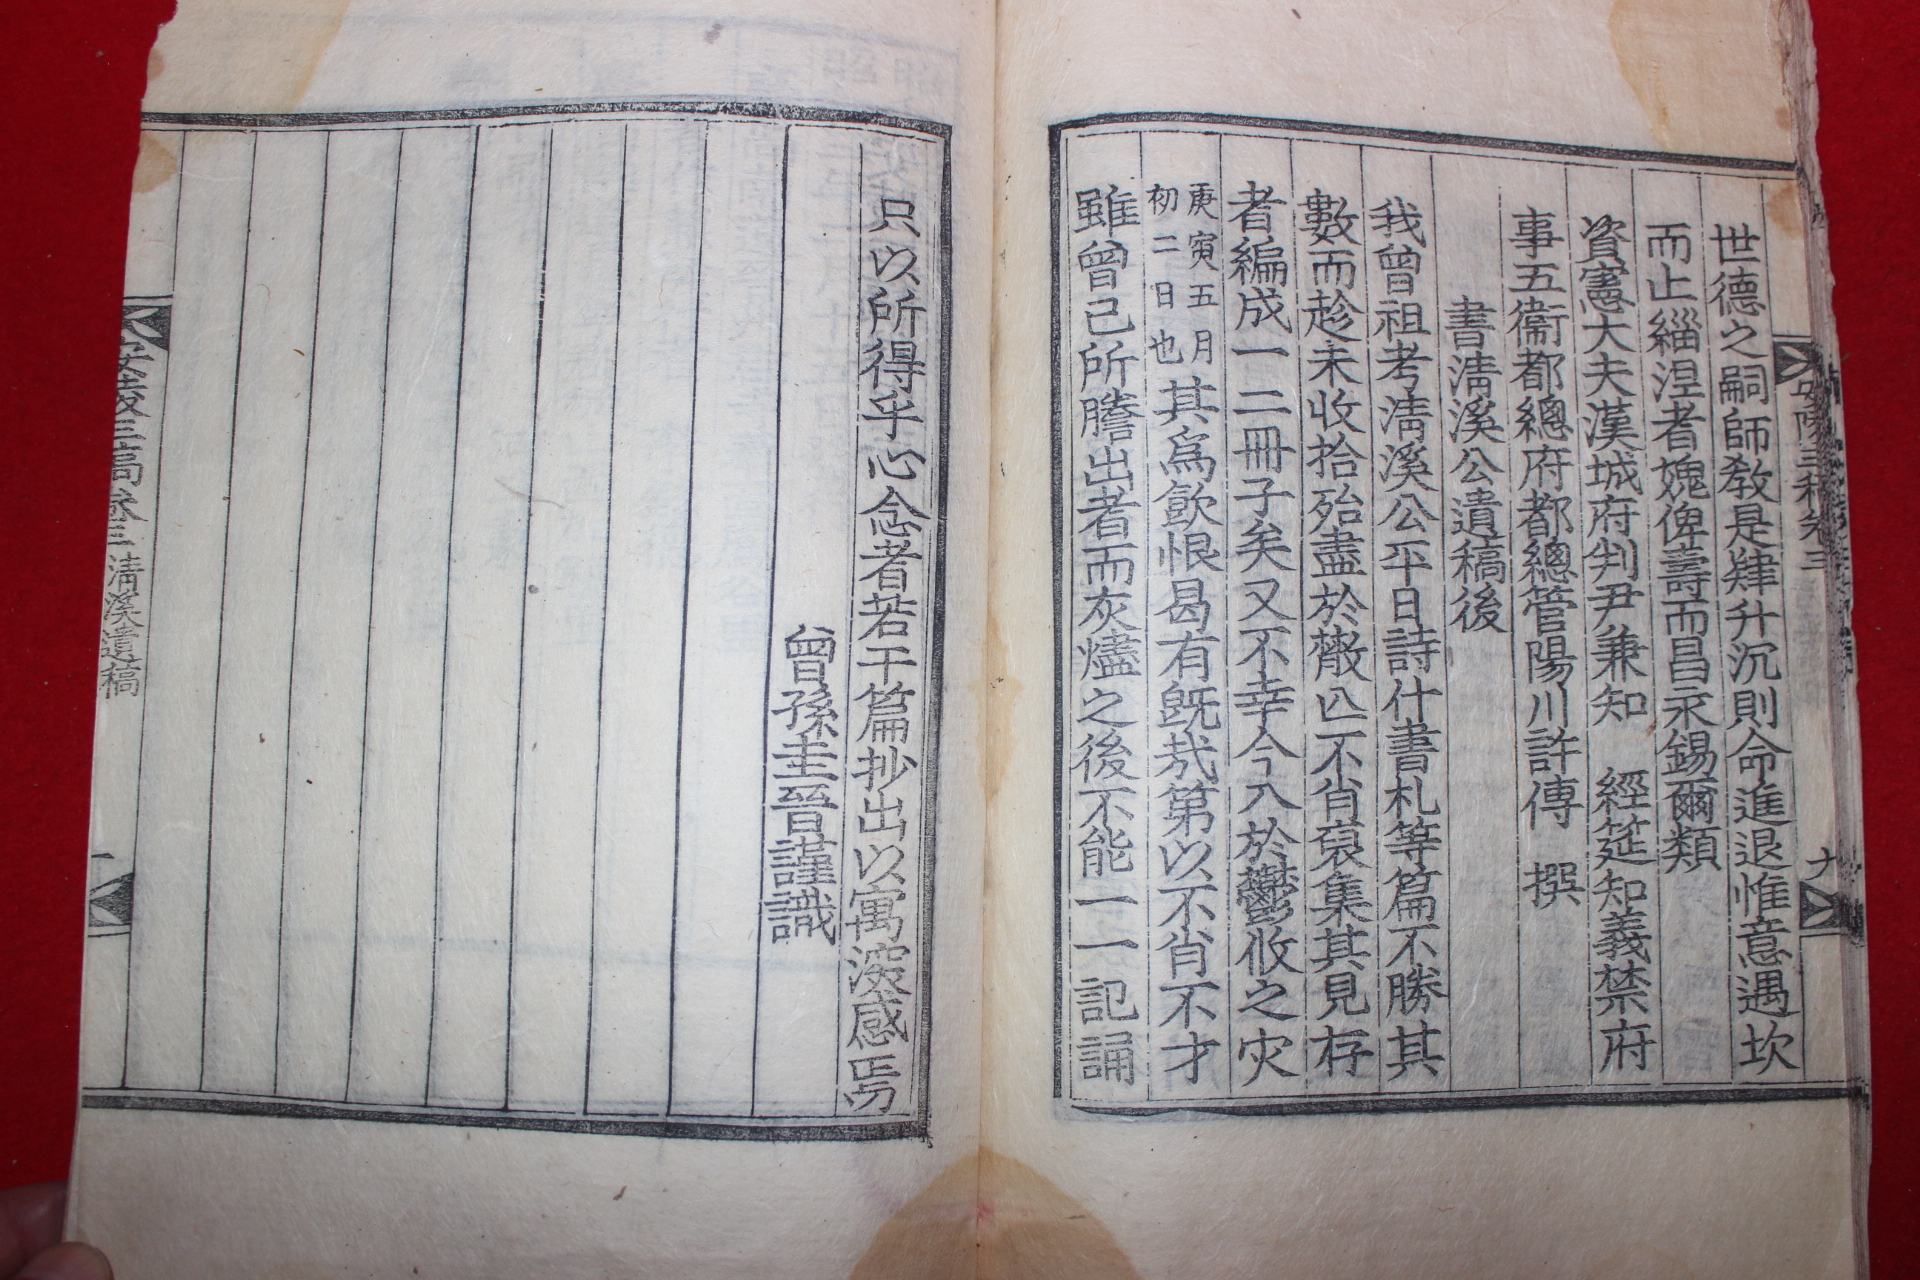 世德之嗣師教是肄升沉則命進退惟意遇坎
而止緇涅者媿俾壽而昌永錫爾類
資憲大夫漢城府判尹兼知 經筵知義禁府
事五衛都總府都總管陽川許傳 撰
書淸溪公遺稿後
我曾祖考淸溪公平日詩什書札等篇不勝其
數而趁未收拾殆盡於散亾不肖裒集其見存
者編成一二冊子矣又不幸今入於鬱攸之灾
庚寅五月
初二日也
其爲飮恨曷有旣㢤第以不肖不才
雖曾己所謄出者而灰燼之後不能一一記誦
只以所得乎心念者若干篇抄出以寓深感焉
曾孫圭晉謹識
三稿卷三 淸溪遺稿